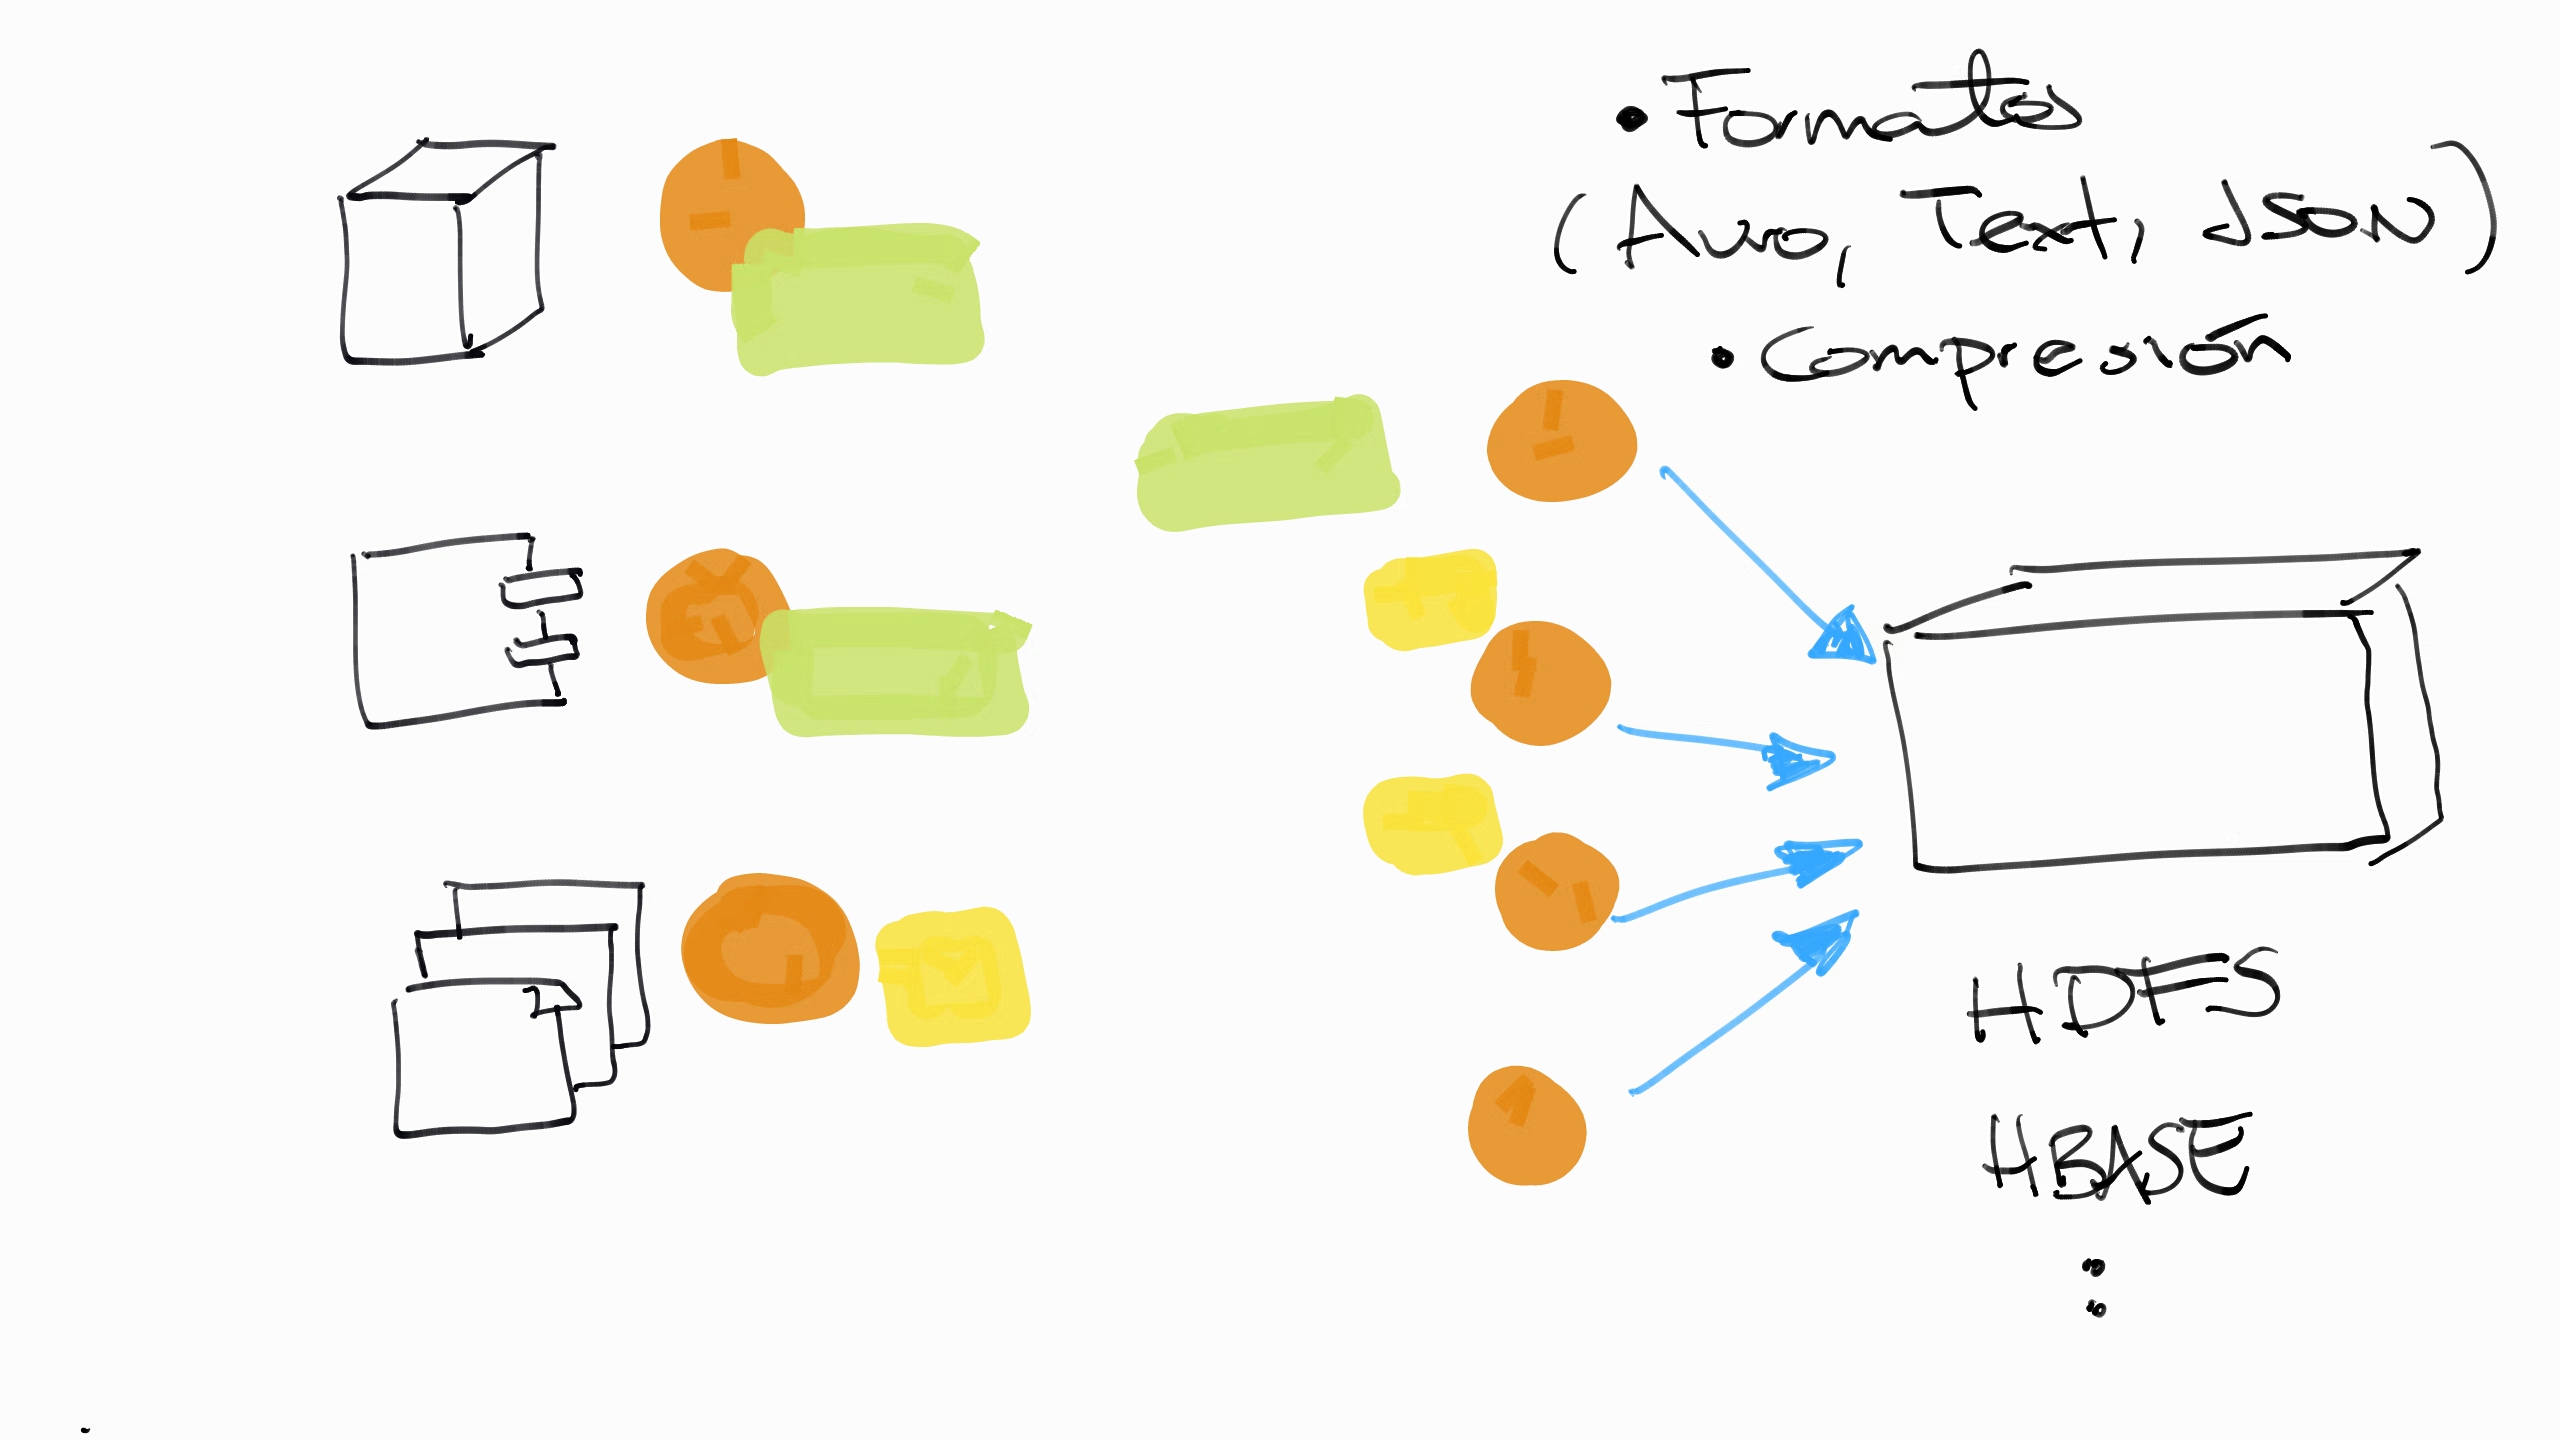 • Formatos
(Avro, Text, JSON)
• Compresión
HDFS
HBASE
: